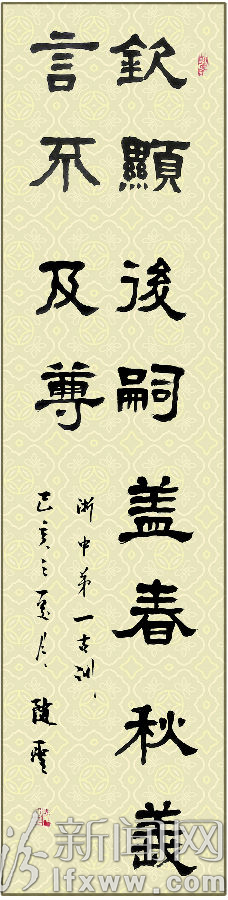 欽顯後嗣盖春秋義
言不及尊
浙中第一古
己亥之夏月
新闻网
lfxww.com